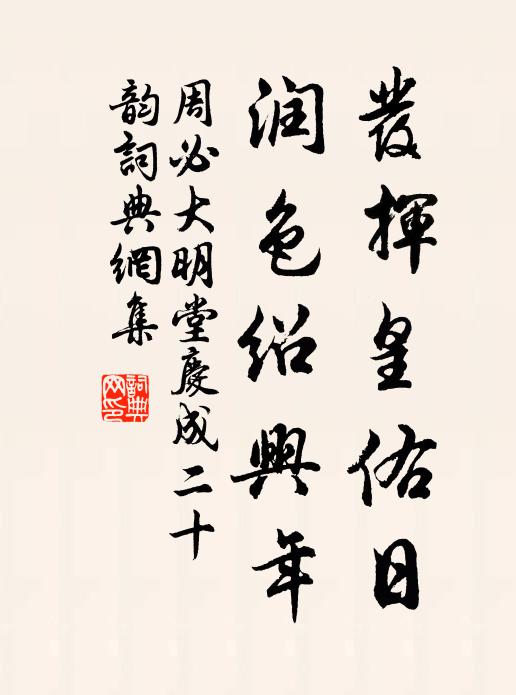 發揮皇佑日
润色紹興年
周必大明堂慶成二十
韵詞典網集
詞典
网印